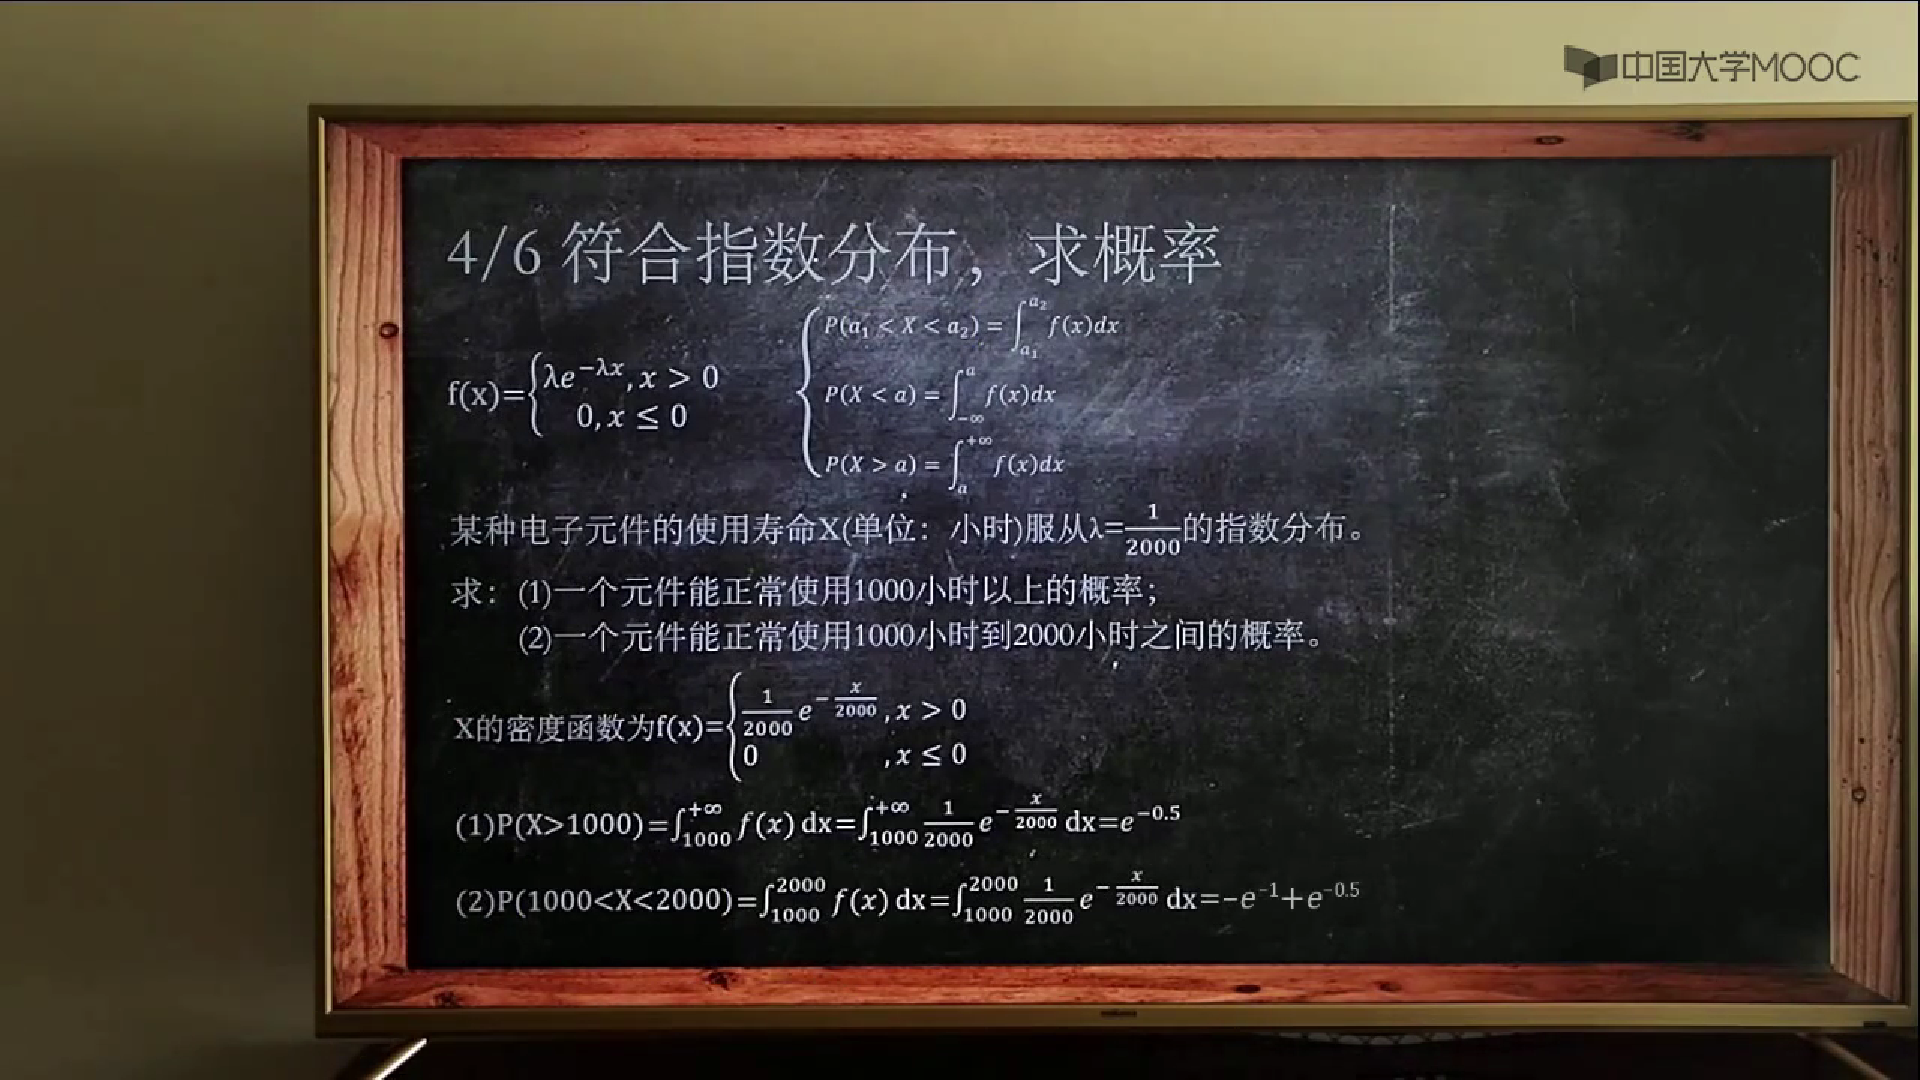 中国大学MOOC
4/6 符合指数分布，求概率
f(x)={λe^{-λx}, x > 0
0, x ≤ 0
P(a₁ < X < a₂) = ∫_{a₁}^{a₂} f(x)dx
P(X < a) = ∫_{-∞}^{a} f(x)dx
P(X > a) = ∫_{a}^{+∞} f(x)dx
某种电子元件的使用寿命X(单位：小时)服从λ=1/2000的指数分布。
求：(1)一个元件能正常使用1000小时以上的概率；
(2)一个元件能正常使用1000小时到2000小时之间的概率。
X的密度函数为f(x)={1/2000 e^{-x/2000}, x > 0
0 , x ≤ 0
(1)P(X>1000)=∫_{1000}^{+∞} f(x) dx=∫_{1000}^{+∞} 1/2000 e^{-x/2000} dx=e^{-0.5}
(2)P(1000<X<2000)=∫_{1000}^{2000} f(x) dx=∫_{1000}^{2000} 1/2000 e^{-x/2000} dx=-e^{-1}+e^{-0.5}